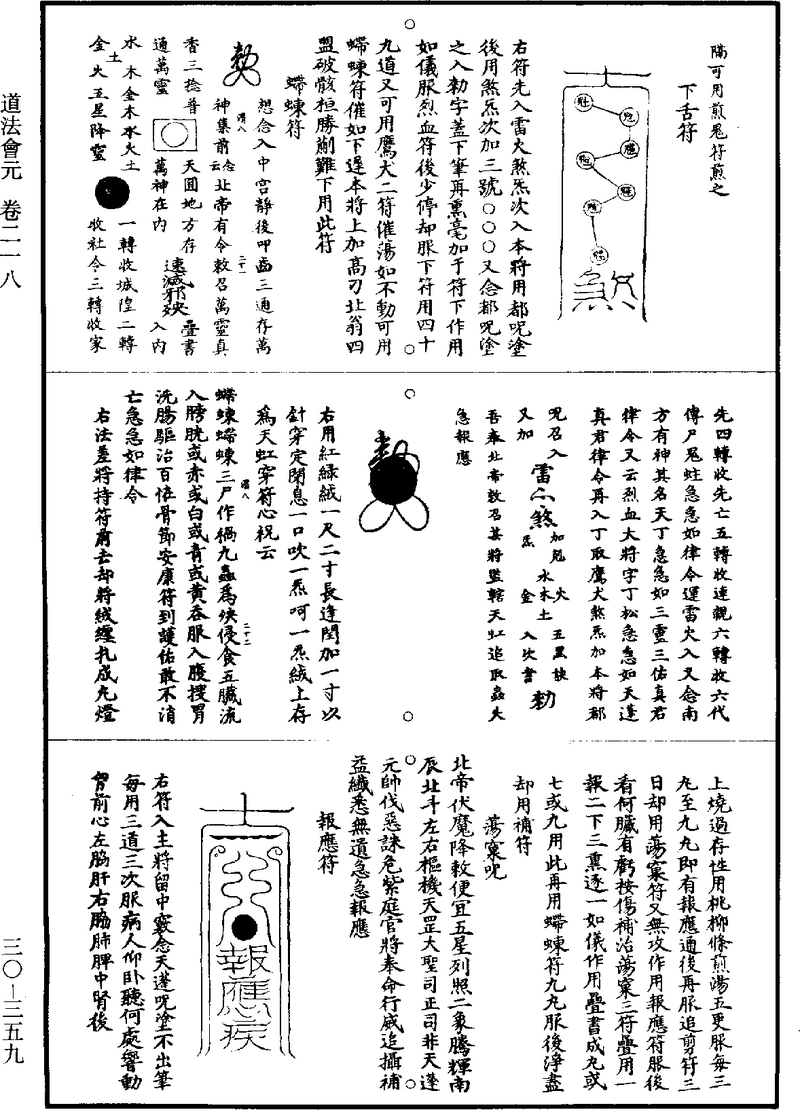 道法會元 卷二一八
三〇—三五九
隔可用煎鬼符煎之
下舌符
右符先入雷火煞炁次入本將用都呪塗
後用煞炁次加三號〇〇〇又念都呪塗
之入勑字蓋下筆再熏毫加于符下作用
如儀服烈血符後少停却服下符用四十
九道又可用鷹犬二符催蕩如不動可用
蝃蝀符催如下遲本將上加高刁北翁四
盟破骸桓勝剷難下用此符
蝃蝀符
勑
想念入中宫靜後叩齒三通存萬
神集前念云北帝有令敕召萬靈真
香三捻普
通萬靈
天圓地方存
萬神在内
速滅邪殃
疊書
入内
水木金木水火土
金火土五星降靈
一轉收城隍二轉
收社令三轉收家
先四轉收先亡五轉收連親六轉收六代
傳尸鬼蛀急急如律令運雷火入又念南
方有神其名天丁急急如三靈三佑真君
律令又云烈血大將字丁松急急如天蓬
真君律令再入丁取鷹犬煞炁加本將都
呪召入
又加
雷
煞
炁
加鬼
水火木土金
五黑訣
入次書
勑
吾奉北帝敕召某將監轄天虹追取蟲失
急報應
右用紅綠絨一尺二寸長逢閏加一寸以
針穿定閉息一口吹一炁呵一炁絨上存
爲天虹穿符心祝云
蝃蝀蝃蝀三尸作禍九蟲爲殃侵食五臟流
入膀胱或赤或白或青或黄吞服入腹搜胃
洗腸驅治百恠骨節安康符到護佑敢不消
亡急急如律令
右法差將持符前去却將絨纏扎成丸燈
上燒過存性用桃柳條煎湯五更服每三
九至九九即有報應通後再服追剪符三
日却用蕩窠符又無攻作用報應符服後
看何臟有虧按傷補治蕩窠三符疊用一
報二下三熏逐一如儀作用疊書成丸或
七或九用此再用蝃蝀符九九服後淨盡
却用補符
蕩窠呪
北帝伏魔降敕便宜五星列照二象騰輝南
辰北斗左右樞機天罡大聖司正司非天蓬
元帥伐惡誅危紫庭官將奉命行威追攝補
益纖悉無遺急急報應
報應符
報應疾
右符入主將留中竅念天蓬呪塗不出筆
每用三道三次服病人仰卧聽何處響動
曾前心左脇肝右脇肺脾中腎後